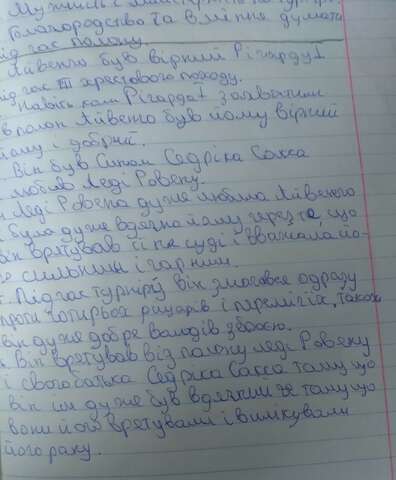 Мужність і майстерність на турнірі
Благородство та вміння думати
під час полону.
Айвенго був вірний Річарду I
під час III хрестового походу.
Навіть коли Річарда I захватили
в полон Айвенго був йому вірний
йому і добрий.
Він був Сином Седріка Сакса
і любив Леді Ровену.
Леді Ровена дуже любила Айвенго
Була дуже вдячна йому через те, що
він врятував її на суді і вважала йо-
го сильним і гарним.
Під час турніру він змагався одразу
проти чотирьох рицарів і переміг їх, також
він дуже добре володів зброєю.
Він врятував від полону леді Ровену
і свого батька Седріка Сакса тому що
він їм дуже був вдячний за тому що
вони його врятували і вилікували
його рану.